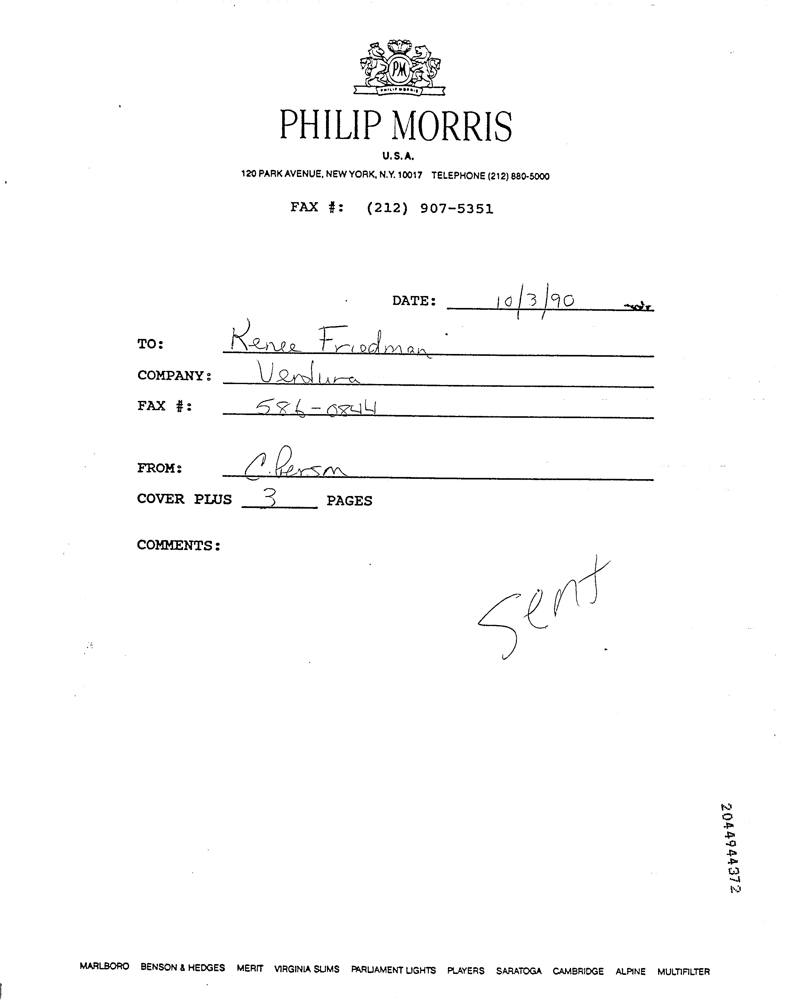 PM
PHILIP MORRIS
PHILIP MORRIS
U.S.A.
120 PARK AVENUE, NEW YORK, N.Y. 10017 TELEPHONE (212) 880-5000
FAX #: (212) 907-5351
DATE: 10/3/90
TO: Renee Friedman
COMPANY: Verdura
FAX #: 586-0844
FROM: C.
COVER PLUS 3 PAGES
COMMENTS:
Sent
2044944372
MARLBORO BENSON & HEDGES MERIT VIRGINIA SLIMS PARLIAMENT LIGHTS PLAYERS SARATOGA CAMBRIDGE ALPINE MULTIFILTER